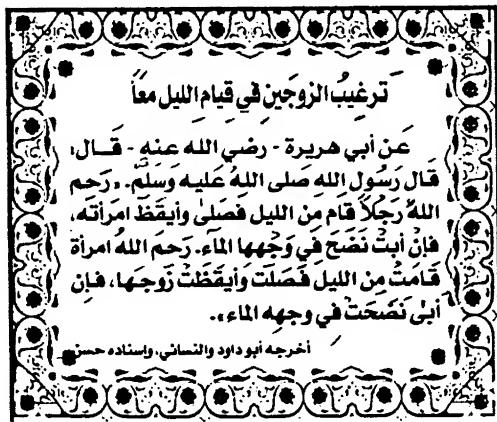 ترغيبُ الزوجَينِ في قيامِ الليل معاً
عَن أبي هريرة - رضي الله عنه - قَال:
قَال رَسُول اللهِ صَلى اللهُ عَليهِ وَسَلمَّ. «رَحِم
اللهُ رَجُلاً قَام مِن الليل فَصَلىٰ وأيقَظَ امرَأتَه،
فإنْ أبتْ نَضَح في وَجْهِها الماءَ. رَحِمَ اللهُ امرأة
قَامَتْ مِن الليل فَصَلت وَأيقَظَتْ زَوجَها، فإن
أبىٰ نَضَحَتْ في وجهِه الماء».
أخرجه أبو داود والنسائي، وإسناده حسن